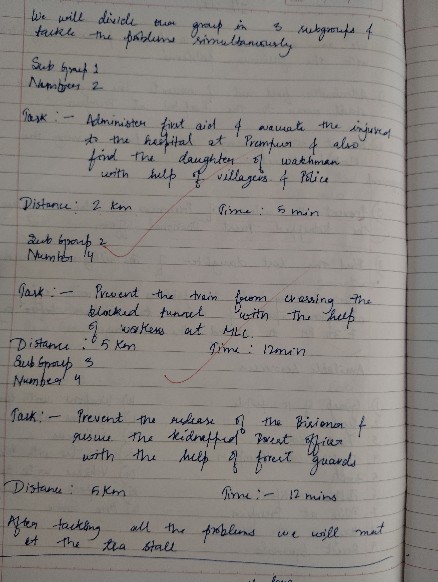 We will divide our group in 3 subgroups &
tackle the problems simultaneously
Sub Group 1
Numbers 2
Task :- Administer first aid & evacuate the injured
to the hospital at Prempur & also
find the daughter of watchman
with help of villagers & Police
Distance : 2 Km Time : 5 min
Sub Group 2
Number 4
Task :- Prevent the train from crossing the
blocked tunnel with the help
of workers at MLC.
Distance : 5 Km Time : 12min
Sub Group 3
Number 4
Task :- Prevent the release of the &
rescue the kidnapped forest officer
with the help of forest guards
Distance : 5Km Time :- 12 mins
After tackling all the problems we will met
at the tea stall